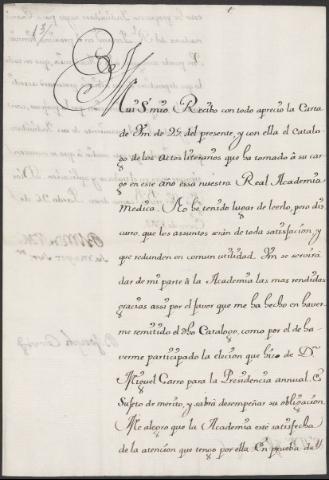 Mui S.r mio. Recibo con todo aprecio la Carta
de Vm. de 24 del presente, y con ella el Catalo-
go de los actos literarios que ha tomado à su car-
go en este año essa nuestra Real Academia
Medica. No he tenido lugar de leerlo, pero dis-
curro, que los assuntos seràn de toda satisfaccion, y
que redunden en comun utilidad. Vm. se servirà
dar de mi parte à la Academia las mas rendidas
gracias assi por el favor que me ha hecho en haver-
me remitido el dho Catalogo, como por el de ha-
verme participado la eleccion que hizo de D.n
Miguel Carro para la Presidencia annual. Es
Sujeto de merito, y sabrà desempeñar su obligacion.
Me alegro que la Academia estè satisfecha
de la atencion que tengo por ella. En prueba de